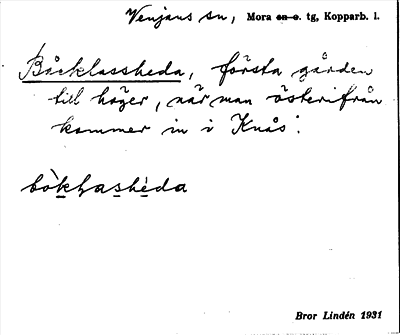 Venjans sn, Mora sn o. tg, Kopparb. l.
Båcklassheda, första gården
till höger, när man österifrån
kommer in i Knås.
Bror Lindén 1931